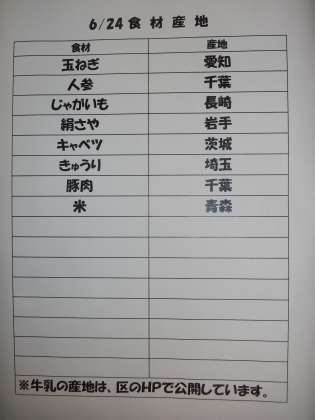 6/24 食材産地
食材 産地
玉ねぎ 愛知
人参 千葉
じゃがいも 長崎
絹さや 岩手
キャベツ 茨城
きゅうり 埼玉
豚肉 千葉
米 青森
※牛乳の産地は、区のHPで公開しています。